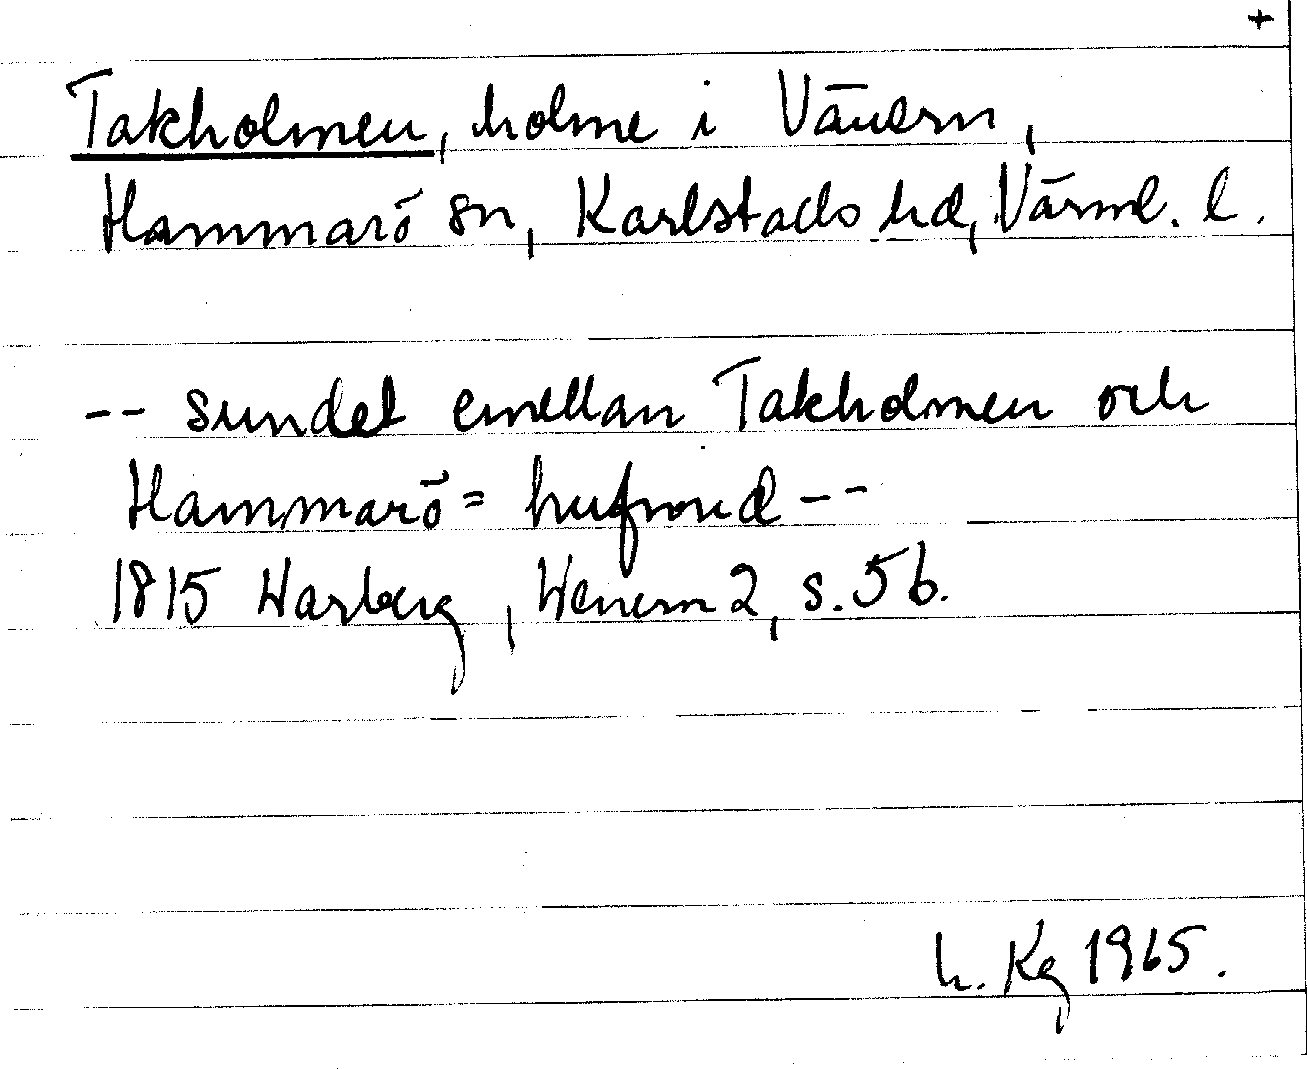 +
Takholmen, holme i Vänern,
Hammarö sn, Karlstads hd, Värml. l.
-- sundet emellan Takholmen och
Hammarö= hufvud --
1815 Warberg, Wenern 2, s. 56.
h. Kg 1965.